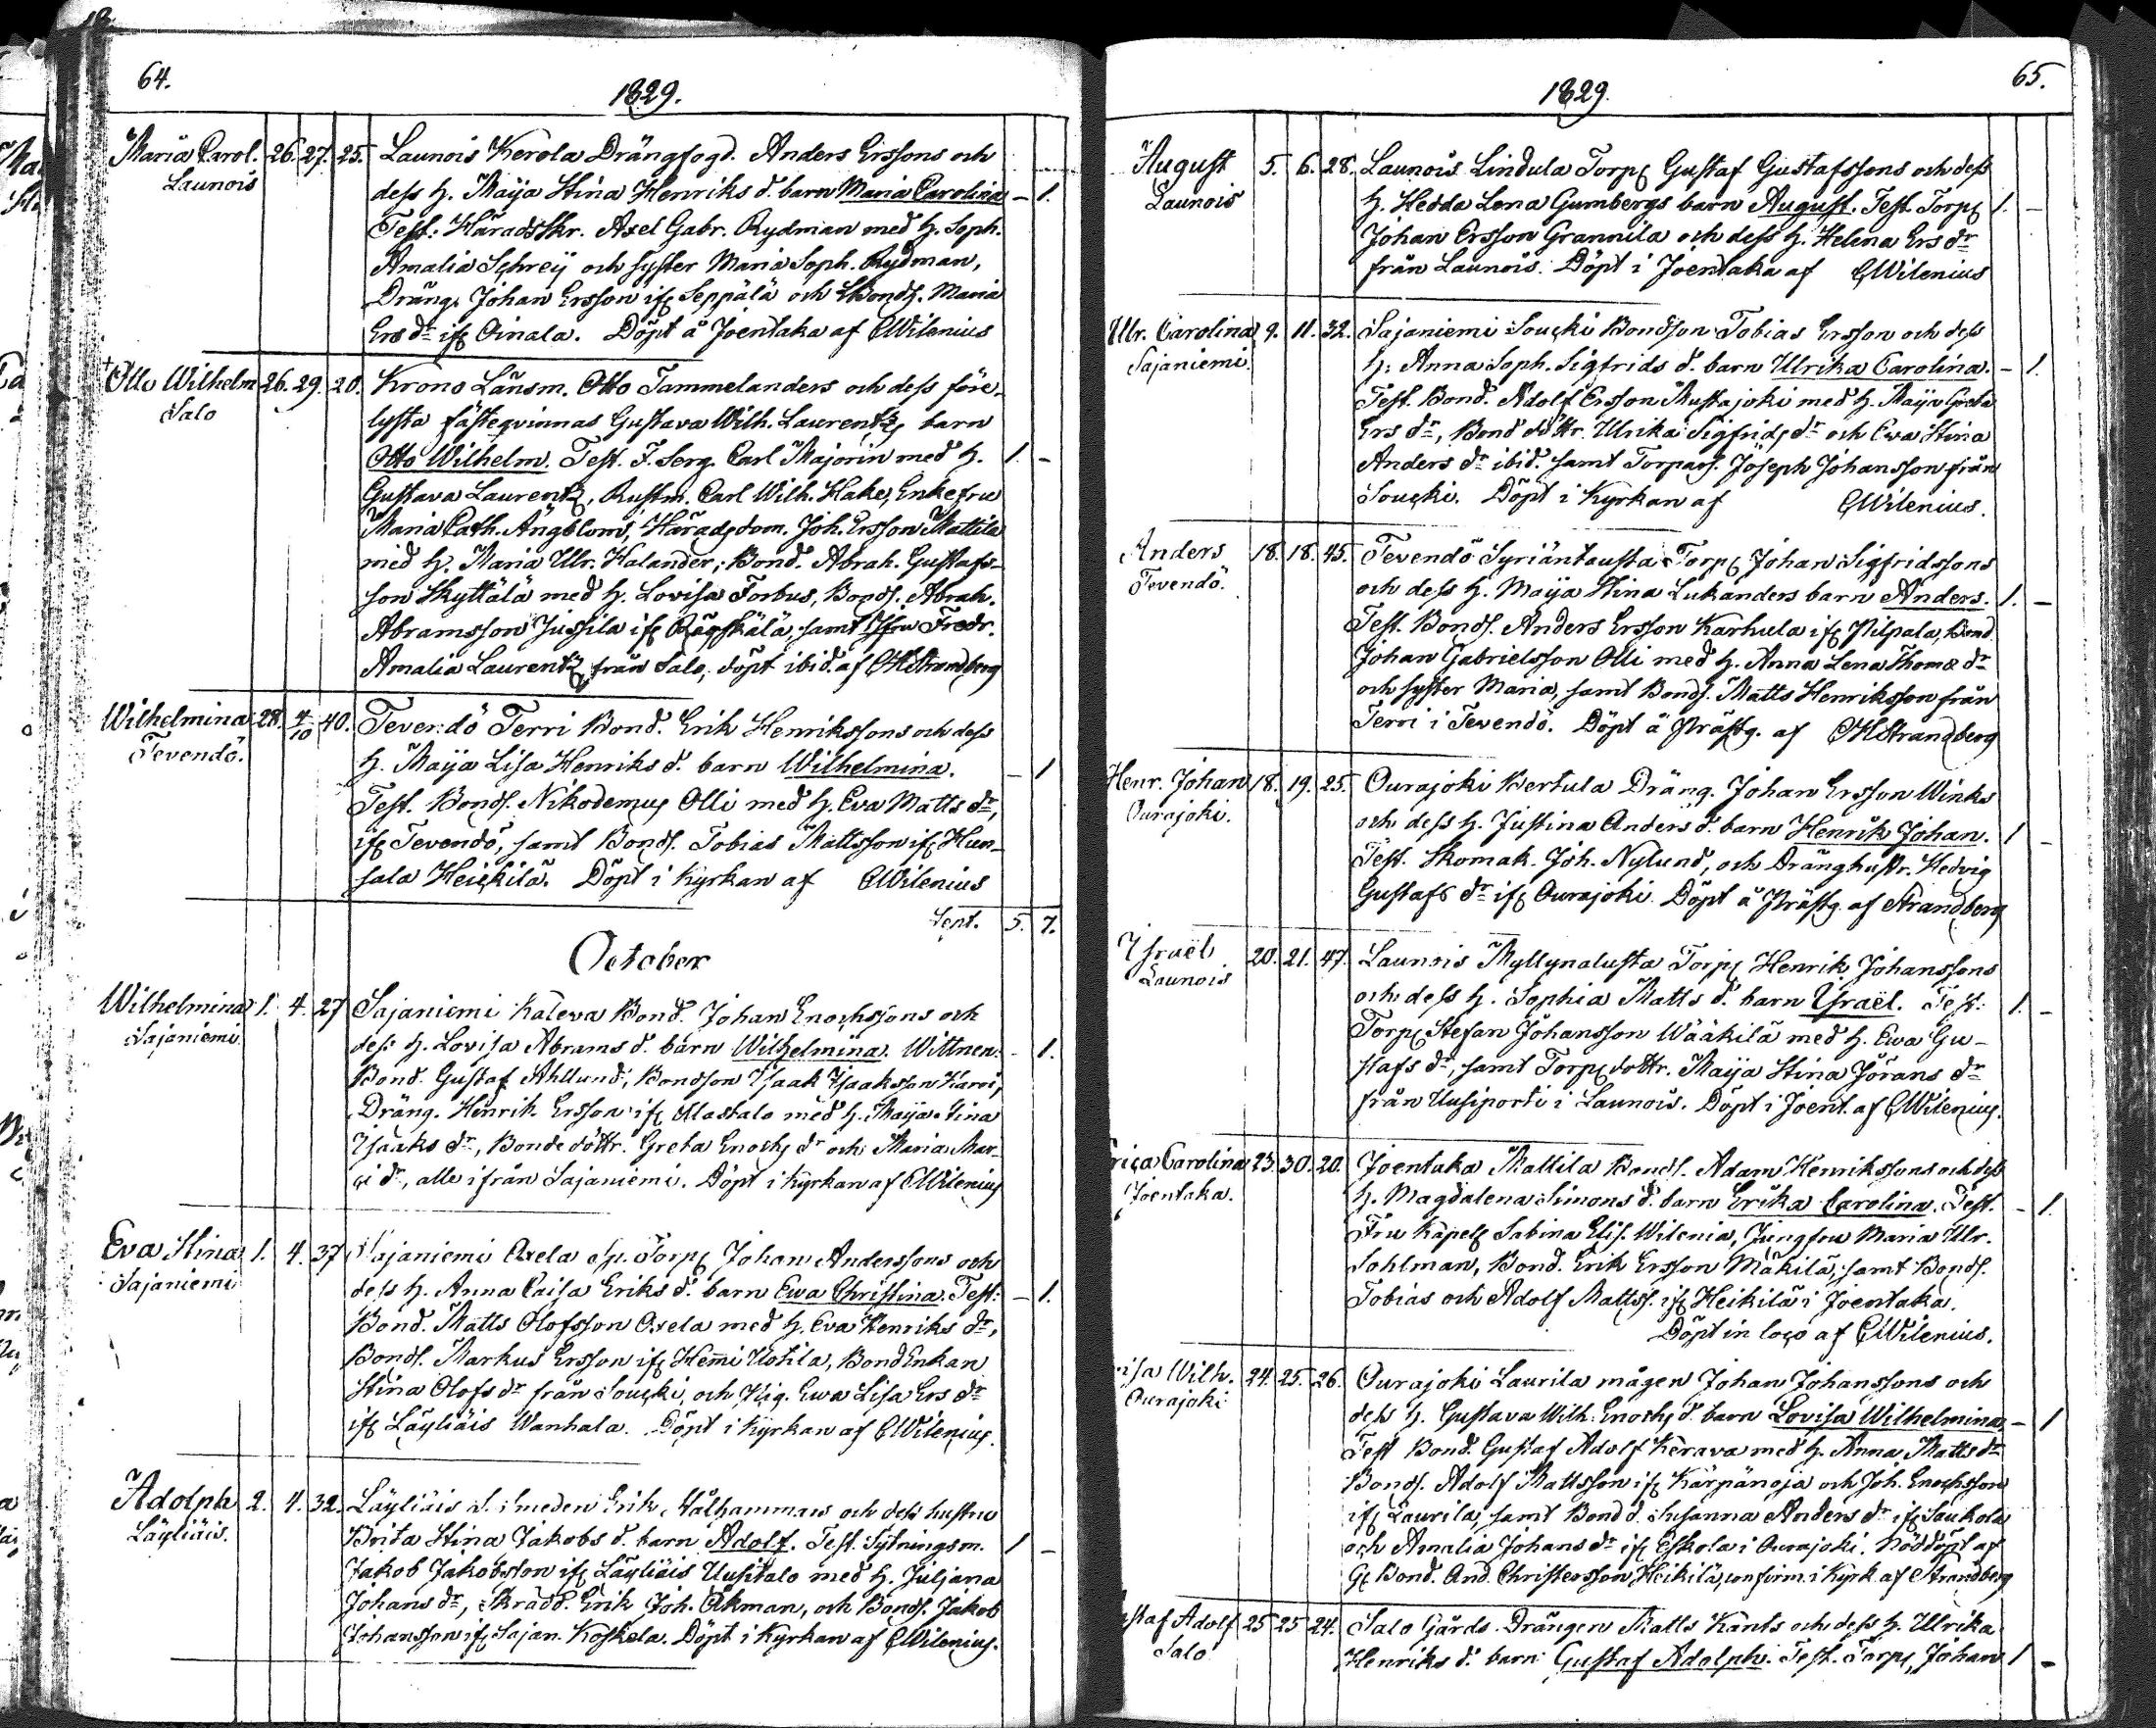 64.
1829.
Maria Carol. 26. 27. 25. Launois Kerola Drängfogd. Anders Ersons och
Launois
dess h. Maija Stina Henriks d. barn Maria Carolina – 1.
Test: HäradsSkr. Axel Gabr. Rydman med h. Soph.
Amalia Schreij och syster Maria Soph. Rydman,
Dräng. Johan Ersson ifr Seppälä och Bonds. Maria
Ers dr ifr Oinala. Döpt å Joentaka af CWilenius
+ Otto Wilhelm 26. 29. 20. Krono Länsm. Otto Tammelanders och dess före-
Salo
lysta fästeqvinnas Gustava Wilh. Laurentz barn
Otto Wilhelm. Test. F. Serg. Carl Majorin med h. 1. –
Gustava Laurentz, Rustm. Carl Wilh. Hake, Enkefru
Maria Cath. Ängblom, Häradsdom. Joh. Ersson Mattila
med h. Maria Ulr. Halander, Bond. Abrah. Gustafs-
son Skyttälä med h. Lovisa Forbus, Bonds. Abrah.
Abramsson Jussila ifr samt Jfru Fredr.
Amalia Laurentz från Salo, döpt ibid. af CHStrandberg
Wilhelmina 28. 4/10 40. Tevendö Terri Bond. Erik Henrikssons och dess
Tevendö.
h. Maija Lisa Henriks d. barn Wilhelmina. – 1
Test. Bonds. Nikodemus Olli med h. Eva Matts dr,
ifr Tevendö, samt Bonds. Tobias Mattsson ifr Hun-
sala Heickilä. Döpt i Kyrkan af CWilenius
Sept. 5. 7.
October
Wilhelmina 1. 4. 27 Sajaniemi Kaleva Bond. Johan Enochssons och
Sajaniemi
dess h. Lovisa Abrams d. barn Wilhelmina. Wittnen: – 1.
Bond. Gustaf Ahllund, Bondson Isaak Isaaksson Karvi,
Dräng. Henrik Ersson ifr Alastalo med h. Maija Stina
Isaaks dr, Bondedöttr. Greta Enochs dr och Maria Mar-
ci dr, alle ifrån Sajaniemi. Döpt i Kyrkan af CWilenius
Eva Stina 1. 4. 37 Sajaniemi Oxela Sp. Torp. Johan Anderssons och
Sajaniemi
dess h. Anna Caisa Eriks d. barn Ewa Christina. Test: – 1.
Bond. Matts Olofsson Oxela med h. Eva Henriks dr,
Bonds. Markus Ersson ifr Hemmi Uotila, BondEnkan
Stina Olofs dr från Soucki, och Pig. Ewa Lisa Ers dr
ifr Läyliäis Wanhala. Döpt i Kyrkan af CWilenius.
Adolph 2. 4. 32. Läyliäis S. Smeden Erik Wålhammars och dess hustru
Läyliäis.
Brita Stina Jakobs d. barn Adolf. Test. Sytningsm. 1 –
Jakob Jakobsson ifr Läyliäis Uusitalo med h. Juljana
Johans dr, Skrädd. Erik Joh. Ekman, och Bonds. Jakob
Johansson ifr Sajan. Koskela. Döpt i Kyrkan af CWilenius.
1829.
65.
August 5. 6. 28. Launois Lindula Torp. Gustaf Gustafssons och dess
Launois
h. Hedda Lena Gumbergs barn August. Test. Torp. 1. –
Johan Ersson Grannila och dess h. Helena Ers dr
från Launois. Döpt i Joentaka af CWilenius
Ulr. Carolina 9. 11. 32. Sajaniemi Soucki Bondson Tobias Ersson och dess
Sajaniemi.
h. Anna Soph. Sigfrids d. barn Ulrika Carolina. – 1.
Test. Bond. Adolf Ersson Mustajoki med h. Maija Greta
Ers dr, Bond döttr. Ulrika Sigfrids dr och Ewa Stina
Anders dr ibid. samt Torpars. Joseph Johansson från
Soucki. Döpt i Kyrkan af CWilenius.
Anders 18. 18. 45. Tevendö Syriäntausta Torp. Johan Sigfridssons
Tevendö.
och dess h. Maija Stina Lukanders barn Anders. 1. –
Test. Bonds. Anders Ersson Karhula ifr Pilpala, Bond.
Johan Gabrielsson Olli med h. Anna Lena Thomæ dr
och syster Maria, samt Bonds. Matts Henriksson från
Terri i Tevendö. Döpt å Prästg. af CHStrandberg
Henr. Johan 18. 19. 25. Ourajoki Bertula Dräng. Johan Ersson Winks
Ourajoki.
och dess h. Justina Anders d. barn Henrik Johan. 1 –
Test. Skomak. Joh. Nylund, och Dränghustr. Hedvig
Gustafs dr ifr Ourajoki. Döpt å Prästg. af Strandberg
Israël 20. 21. 47. Launois Myllynalusta Torp. Henrik Johanssons
Launois
och dess h. Sophia Matts d. barn Israël. Test: 1. –
Torp. Stefan Johansson Wääkilä med h. Ewa Gu-
stafs dr, samt Torp.dottr. Maija Stina Jörans dr
från Uusiporti i Launois. Döpt i Joent. af CWilenius.
rica Carolina 23. 30. 20. Joentaka Mattila Bonds. Adam Henrikssons och dess
Joentaka.
h. Magdalena Simons d. barn Erika Carolina. Test. – 1.
Fru Kapell. Sabina Elis. Wilenia, Jungfru Maria Ulr.
Sohlman, Bond. Erik Ersson Mäkilä, samt Bonds.
Tobias och Adolf Mattss. ifr Heikilä i Joentaka.
Döpt in loco af CWilenius.
isa Wilh. 24. 25. 26. Ourajoki Laurila mågen Johan Johanssons och
Ourajoki
dess h. Gustava Wilh. Enochs d. barn Lovisa Wilhelmina, – 1
Test Bond. Gustaf Adolf Kerava med h. Anna Matts dr
Bonds. Adolf Mattsson ifr Kärpänoja och Joh. Enochsson
ifr Laurila, samt Bond d. Susanna Anders dr ifr Saukola
och Amalia Johans dr ifr Eskola i Ourajoki. Nöddöpt af
Bond. And. Christersson Heikilä, confirm. i Kyrk. af Strandberg
staf Adolf 25 25 24. Salo Gårds Drängen Matts Kants och dess h. Ulrika
Salo
Henriks d. barn Gustaf Adolph. Test. Torp. Johan 1 –